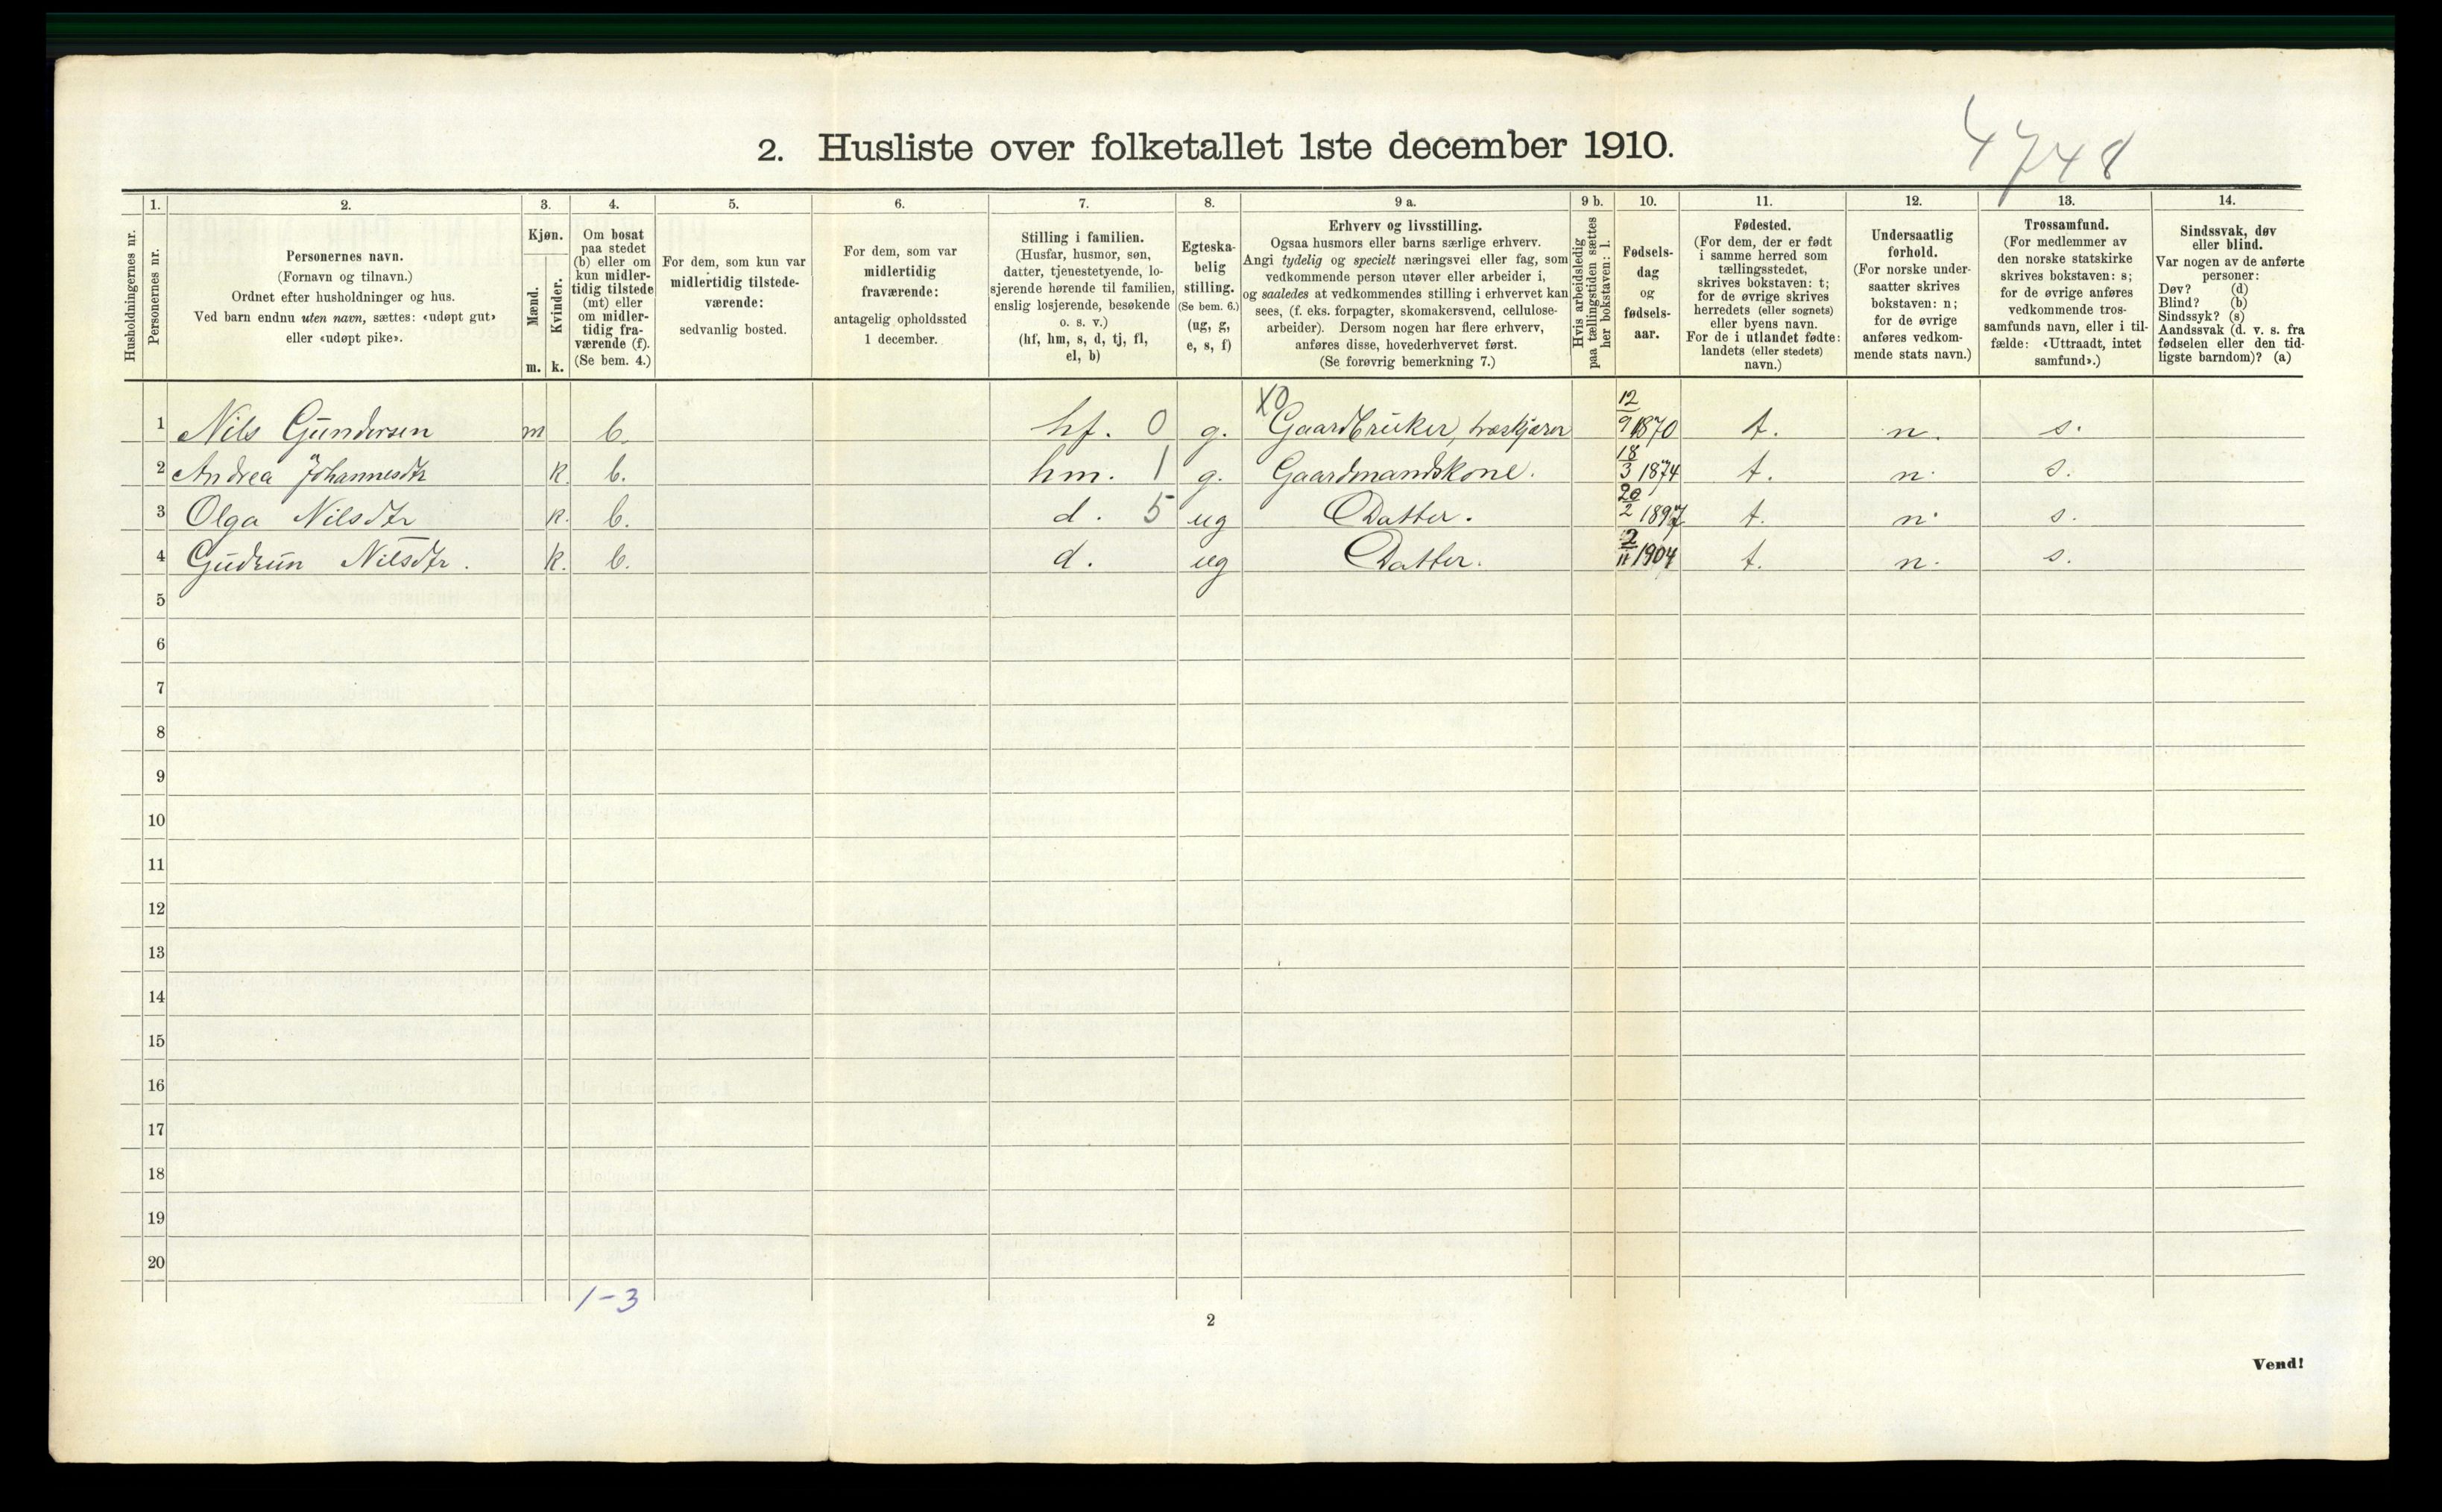 4748
2. Husliste over folketallet 1ste december 1910.
1. 2. 3. 4. 5. 6. 7. 8. 9 a. 9 b. 10. 11. 12. 13. 14.
Husholdningernes nr.
Personernes nr.
Personernes navn.
(Fornavn og tilnavn.)
Ordnet efter husholdninger og hus.
Ved barn endnu uten navn, sættes: «udøpt gut»
eller «udøpt pike».
Kjøn.
Mænd.
Kvinder.
m. k.
Om bosat
paa stedet
(b) eller om
kun midler-
tidig tilstede
(mt) eller
om midler-
tidig fra-
værende (f).
(Se bem. 4.)
For dem, som kun var
midlertidig tilstede-
værende:
sedvanlig bosted.
For dem, som var
midlertidig
fraværende:
antagelig opholdssted
1 december.
Stilling i familien.
(Husfar, husmor, søn,
datter, tjenestetyende, lo-
sjerende hørende til familien,
enslig losjerende, besøkende
o. s. v.)
(hf, hm, s, d, tj, fl,
el, b)
Egteska-
belig
stilling.
(Se bem. 6.)
(ug, g,
e, s, f)
Erhverv og livsstilling.
Ogsaa husmors eller barns særlige erhverv.
Angi tydelig og specielt næringsvei eller fag, som
vedkommende person utøver eller arbeider i,
og saaledes at vedkommendes stilling i erhvervet kan
sees, (f. eks. forpagter, skomakersvend, cellulose-
arbeider). Dersom nogen har flere erhverv,
anføres disse, hovederhvervet først.
(Se forøvrig bemerkning 7.)
Hvis arbeidsledig
paa tællingstiden sættes
her bokstaven: l.
Fødsels-
dag
og
fødsels-
aar.
Fødested.
(For dem, der er født
i samme herred som
tællingsstedet,
skrives bokstaven: t;
for de øvrige skrives
herredets (eller sognets)
eller byens navn.
For de i utlandet fødte:
landets (eller stedets)
navn.)
Undersaatlig
forhold.
(For norske under-
saatter skrives
bokstaven: n;
for de øvrige
anføres vedkom-
mende stats navn.)
Trossamfund.
(For medlemmer av
den norske statskirke
skrives bokstaven: s;
for de øvrige anføres
vedkommende tros-
samfunds navn, eller i til-
fælde: «Uttraadt, intet
samfund».)
Sindssvak, døv
eller blind.
Var nogen av de anførte
personer:
Døv? (d)
Blind? (b)
Sindssyk? (s)
Aandssvak (d. v. s. fra
fødselen eller den tid-
ligste barndom)? (a)
1 Nils Gundersen m b. hf. 0 g. X0 Gaardbruker, træskjærer 12/9 1870 t. n. s.
2 Andrea Johannesdtr k. b. hm. 1 g. Gaardmandskone. 18/3 1874 t. n. s.
3 Olga Nilsdtr k. b. d. 5 ug Datter. 20/2 1897 t. n. s.
4 Gudrun Nilsdtr. k. b. d. ug Datter. 2/11 1904 t. n. s.
5
6
7
8
9
10
11
12
13
14
15
16
17
18
19
20
1-3
2
Vend!